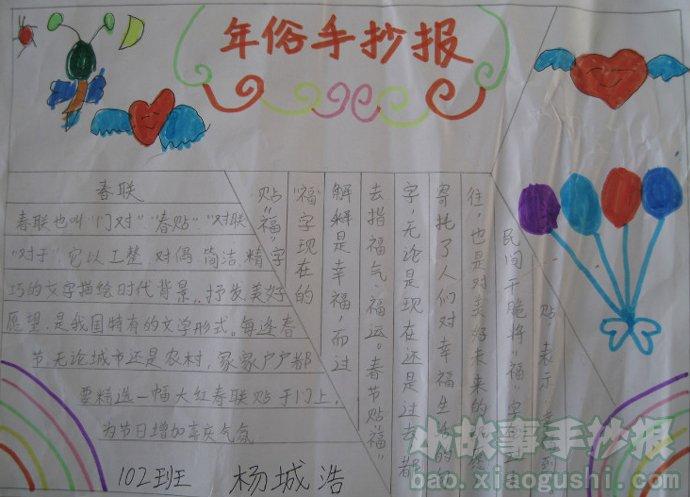 年俗手抄报
春联
春联也叫"门对""春贴""对联
"对子"，它以工整、对偶、简洁、精字
巧的文字描绘时代背景，抒发美好
愿望，是我国特有的文学形式。每逢春
节，无论城市还是农村，家家户户都
要精选一幅大红春联贴于门上，
为节日增加喜庆气氛
102班 杨城浩
贴"福"
"福"字现在的
解释是幸福而过
去指福气、福运。春节贴"福"
字，无论是现在还是过去，都
寄托了人们对幸福生活的
往，也是对美好未来的
民间干脆将"福"字
贴，表示
小故事手抄报
bao.xiaogushi.com